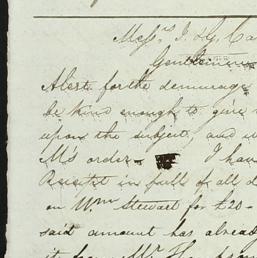 Messrs. J. & G. Ca
Gentlemen
Alert for the demurrag
be kind enough to give
upon the subject, and
M's order I have
in full of all d
on Wm Stewart for £20-
said amount has alread
it from Mr. The